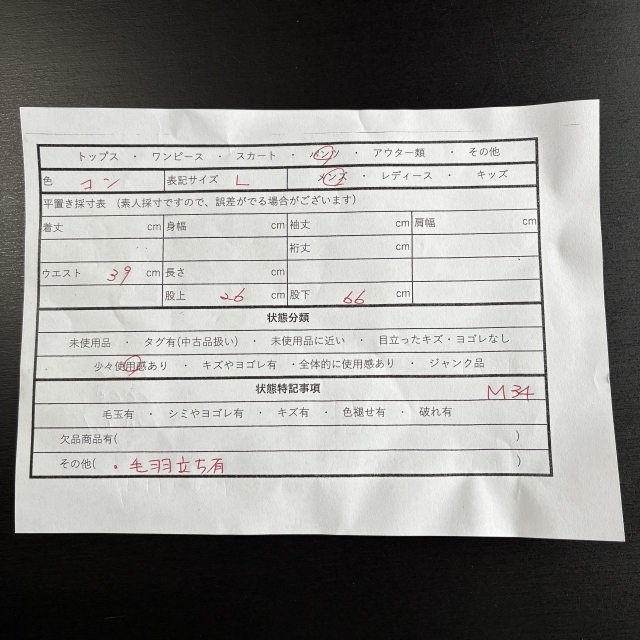 トップス ・ ワンピース ・ スカート ・ パンツ ・ アウター類 ・ その他
色 コン 表記サイズ L メンズ ・ レディース ・ キッズ
平置き採寸表 (素人採寸ですので、誤差がでる場合がございます)
着丈 cm 身幅 cm 袖丈 cm 肩幅 cm
裄丈 cm
ウエスト 39 cm 長さ cm
股上 26 cm 股下 66 cm
状態分類
未使用品 ・ タグ有(中古品扱い) ・ 未使用品に近い ・ 目立ったキズ・ヨゴレなし
少々使用感あり ・ キズやヨゴレ有 ・全体的に使用感あり ・ ジャンク品
状態特記事項 M34
毛玉有 ・ シミやヨゴレ有 ・ キズ有 ・ 色褪せ有 ・ 破れ有
欠品商品有( )
その他( ・毛羽立ち有 )